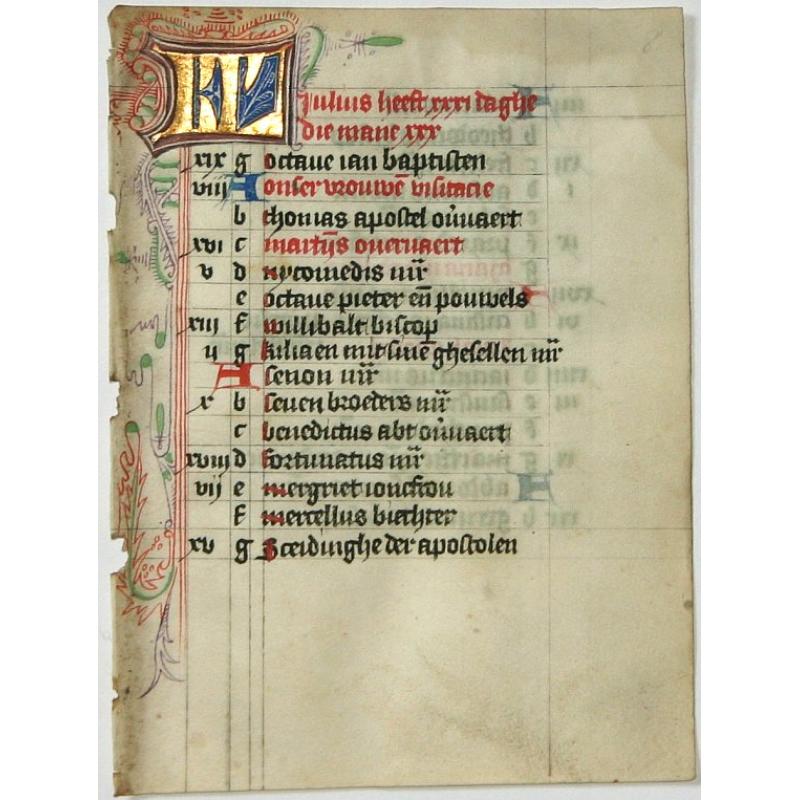 KL Julius heeft xxxi daghe
die mane xxx
xix g octaue ian baptisten
viij A onser vrouwē visitacie
b thomas apostel ou̅uaert
xvi c martijs oueruaert
v d nycomedis mr̅
e octaue pieter en̅ pouwels
xiij f willibalt biscop
ij g kiliaen mit sinē ghesellen mr̅
A senon mr̅
x b seuen broeders mr̅
c benedictus abt ou̅uaert
xviij d fortunatus mr̅
vij e mergriet ioncfrou
f mercellus biechter
xv g Sceidinghe der apostolen